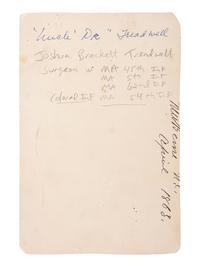 "Uncle" Doc" Treadwell
Joshua Brackett Treadwell
Surgeon w MA 45th INF
MA 5th INF
MA 62nd INF
Colored INF MA 54th INF
Newberne N.C.
April 1863.